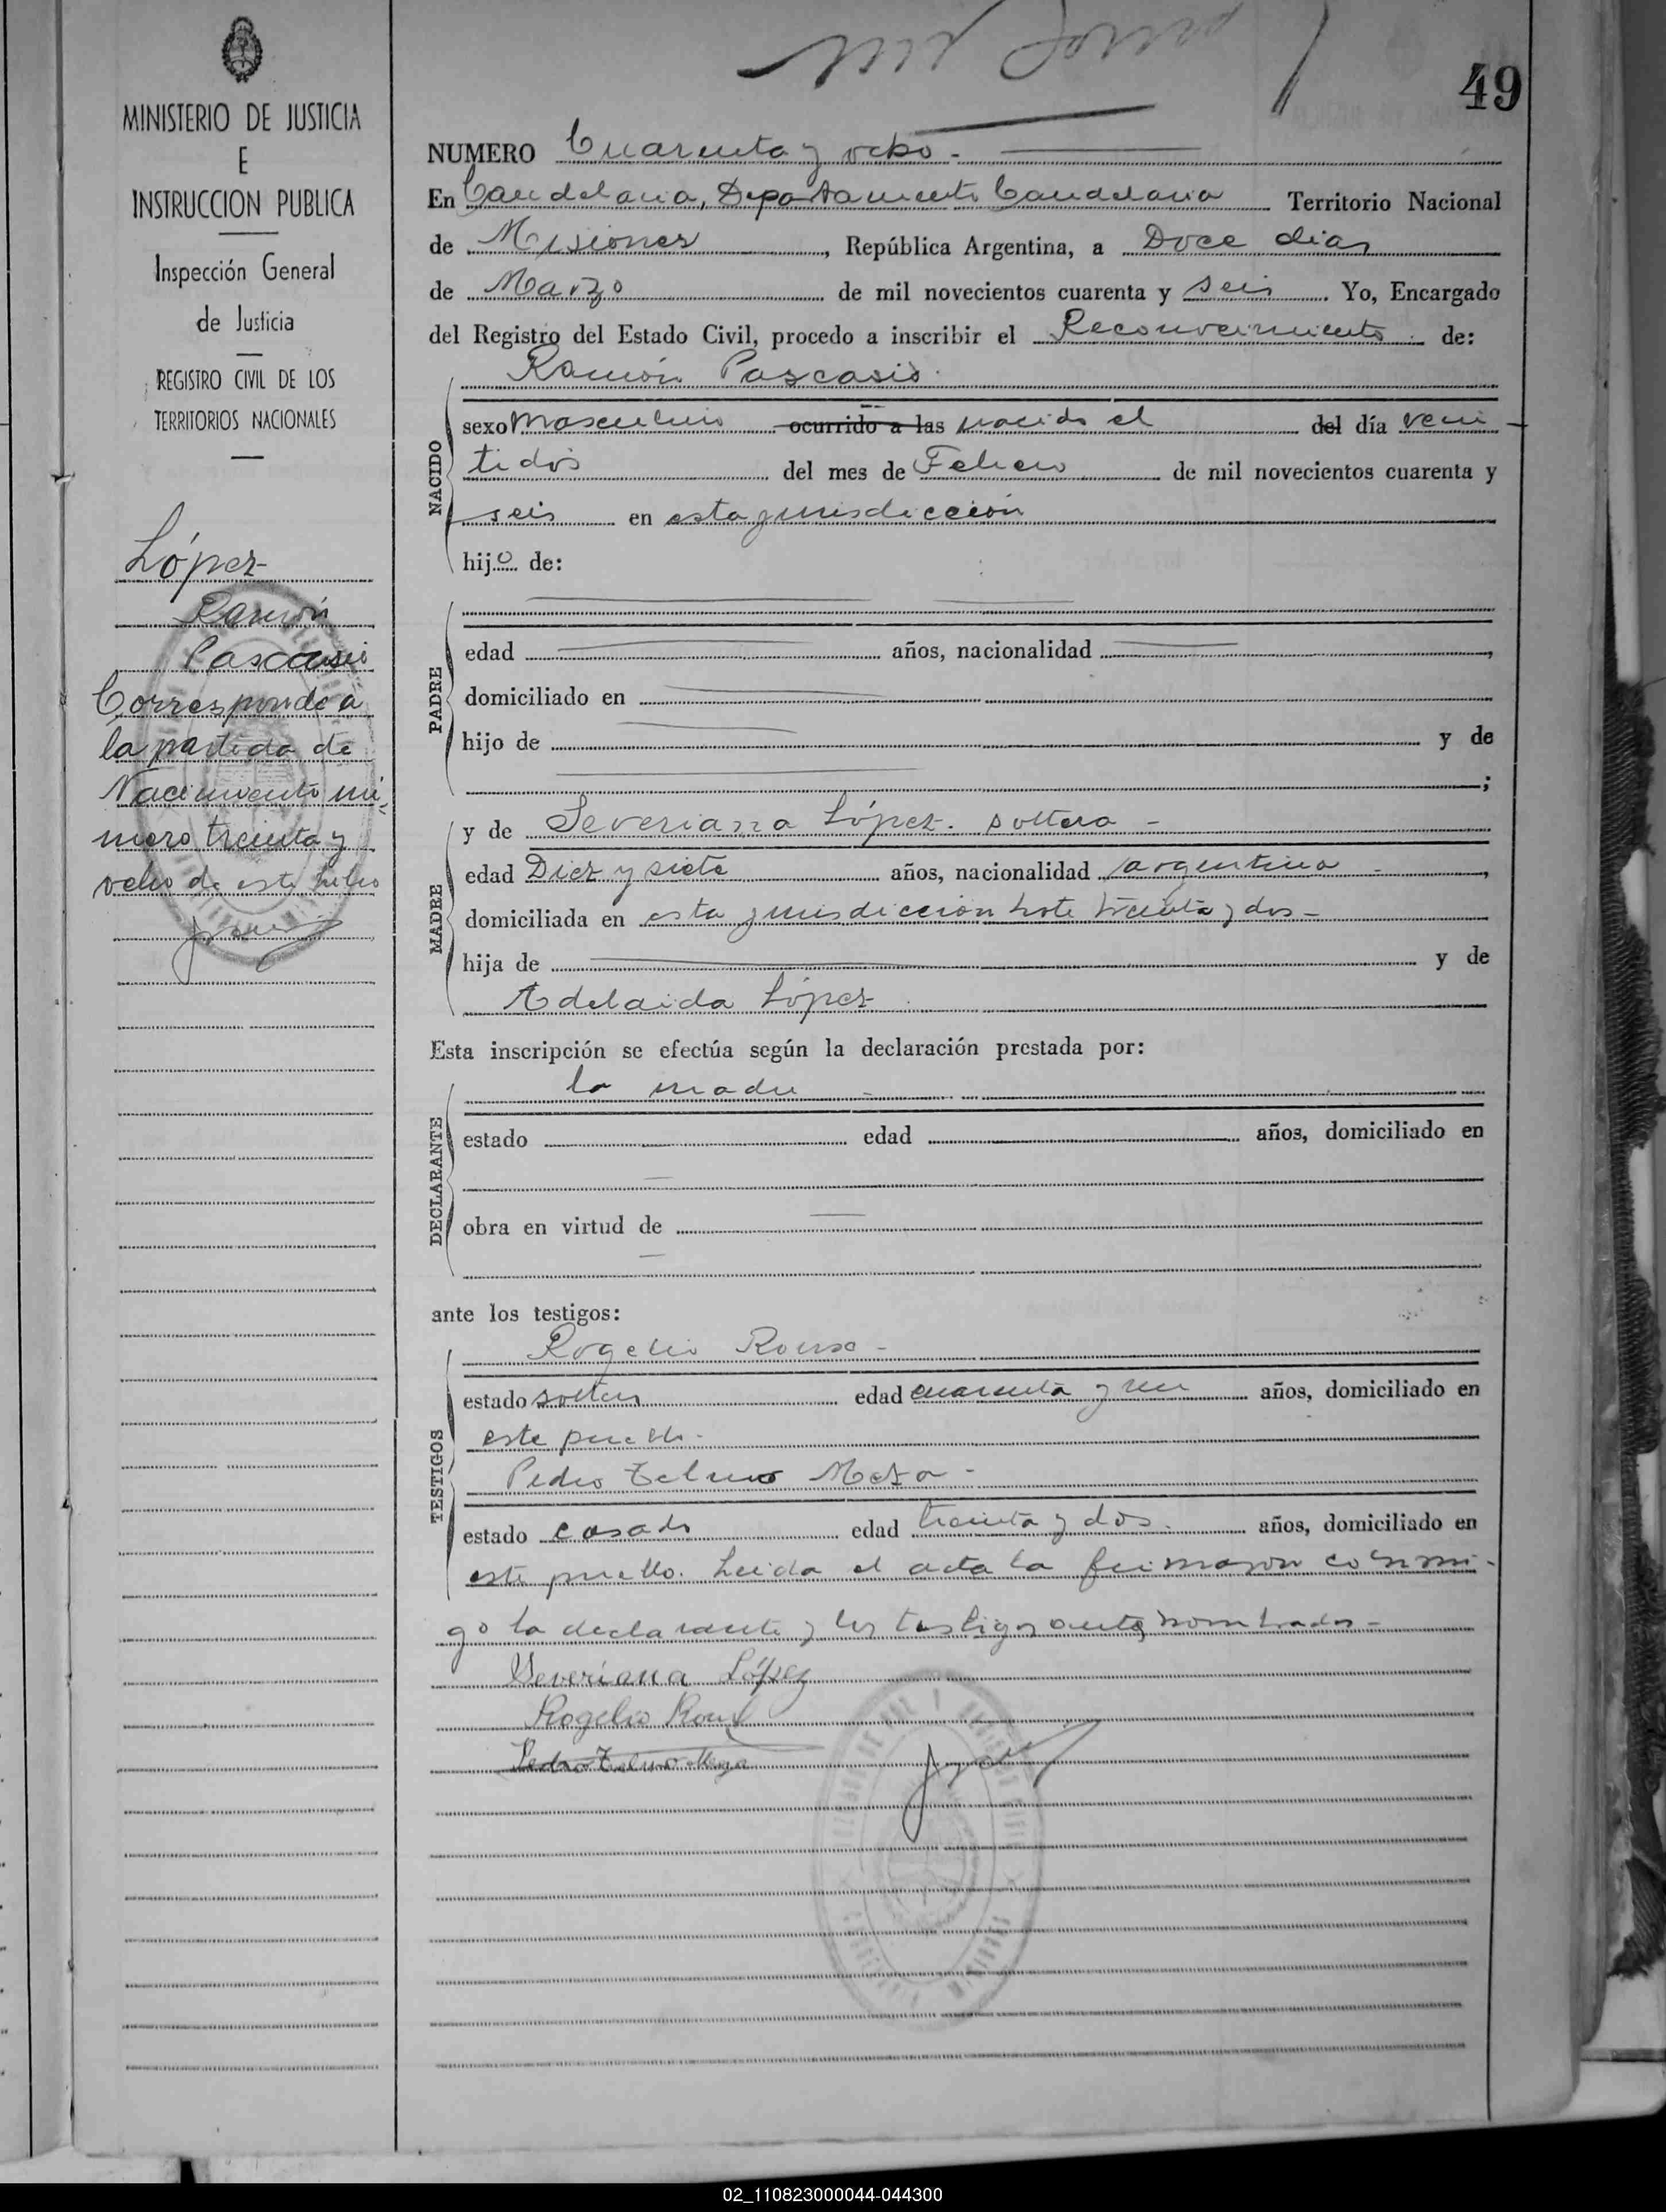 49
MINISTERIO DE JUSTICIA
E
INSTRUCCION PUBLICA
Inspección General
de Justicia
REGISTRO CIVIL DE LOS
TERRITORIOS NACIONALES
López
Ramón
Pascasio
Corresponde a
la partida de
Nacimiento nú-
mero treinta y
ocho de este libro
NUMERO Cuarenta y ocho.-
En Candelaria, Departamento Candelaria Territorio Nacional
de Misiones, República Argentina, a Doce dias
de Marzo de mil novecientos cuarenta y seis. Yo, Encargado
del Registro del Estado Civil, procedo a inscribir el Reconocimiento de:
Ramón Pascasio.
NACIDO
sexo masculino ocurrido a las nacido el del día vein
tidós del mes de Febrero de mil novecientos cuarenta y
seis en esta jurisdicción
hijo de:
PADRE
edad años, nacionalidad ,
domiciliado en
hijo de y de
;
MADRE
y de Severiana López. soltera -
edad Diez y siete años, nacionalidad argentina -,
domiciliada en esta jurisdicción lote treinta y dos -
hija de y de
Adelaida López
Esta inscripción se efectúa según la declaración prestada por:
DECLARANTE
la madre -
estado edad años, domiciliado en
obra en virtud de
ante los testigos:
TESTIGOS
Rogelio Roux -
estado soltero edad cuarenta y un años, domiciliado en
este pueblo.-
Pedro Telmo Meza -
estado casado edad treinta y dos. años, domiciliado en
este pueblo. Leida el acta la firmaron conmi-
go la declarante y los testigos antes nombrados -
Severiana López
Rogelio Roux
Pedro Telmo Meza
02_110823000044-044300